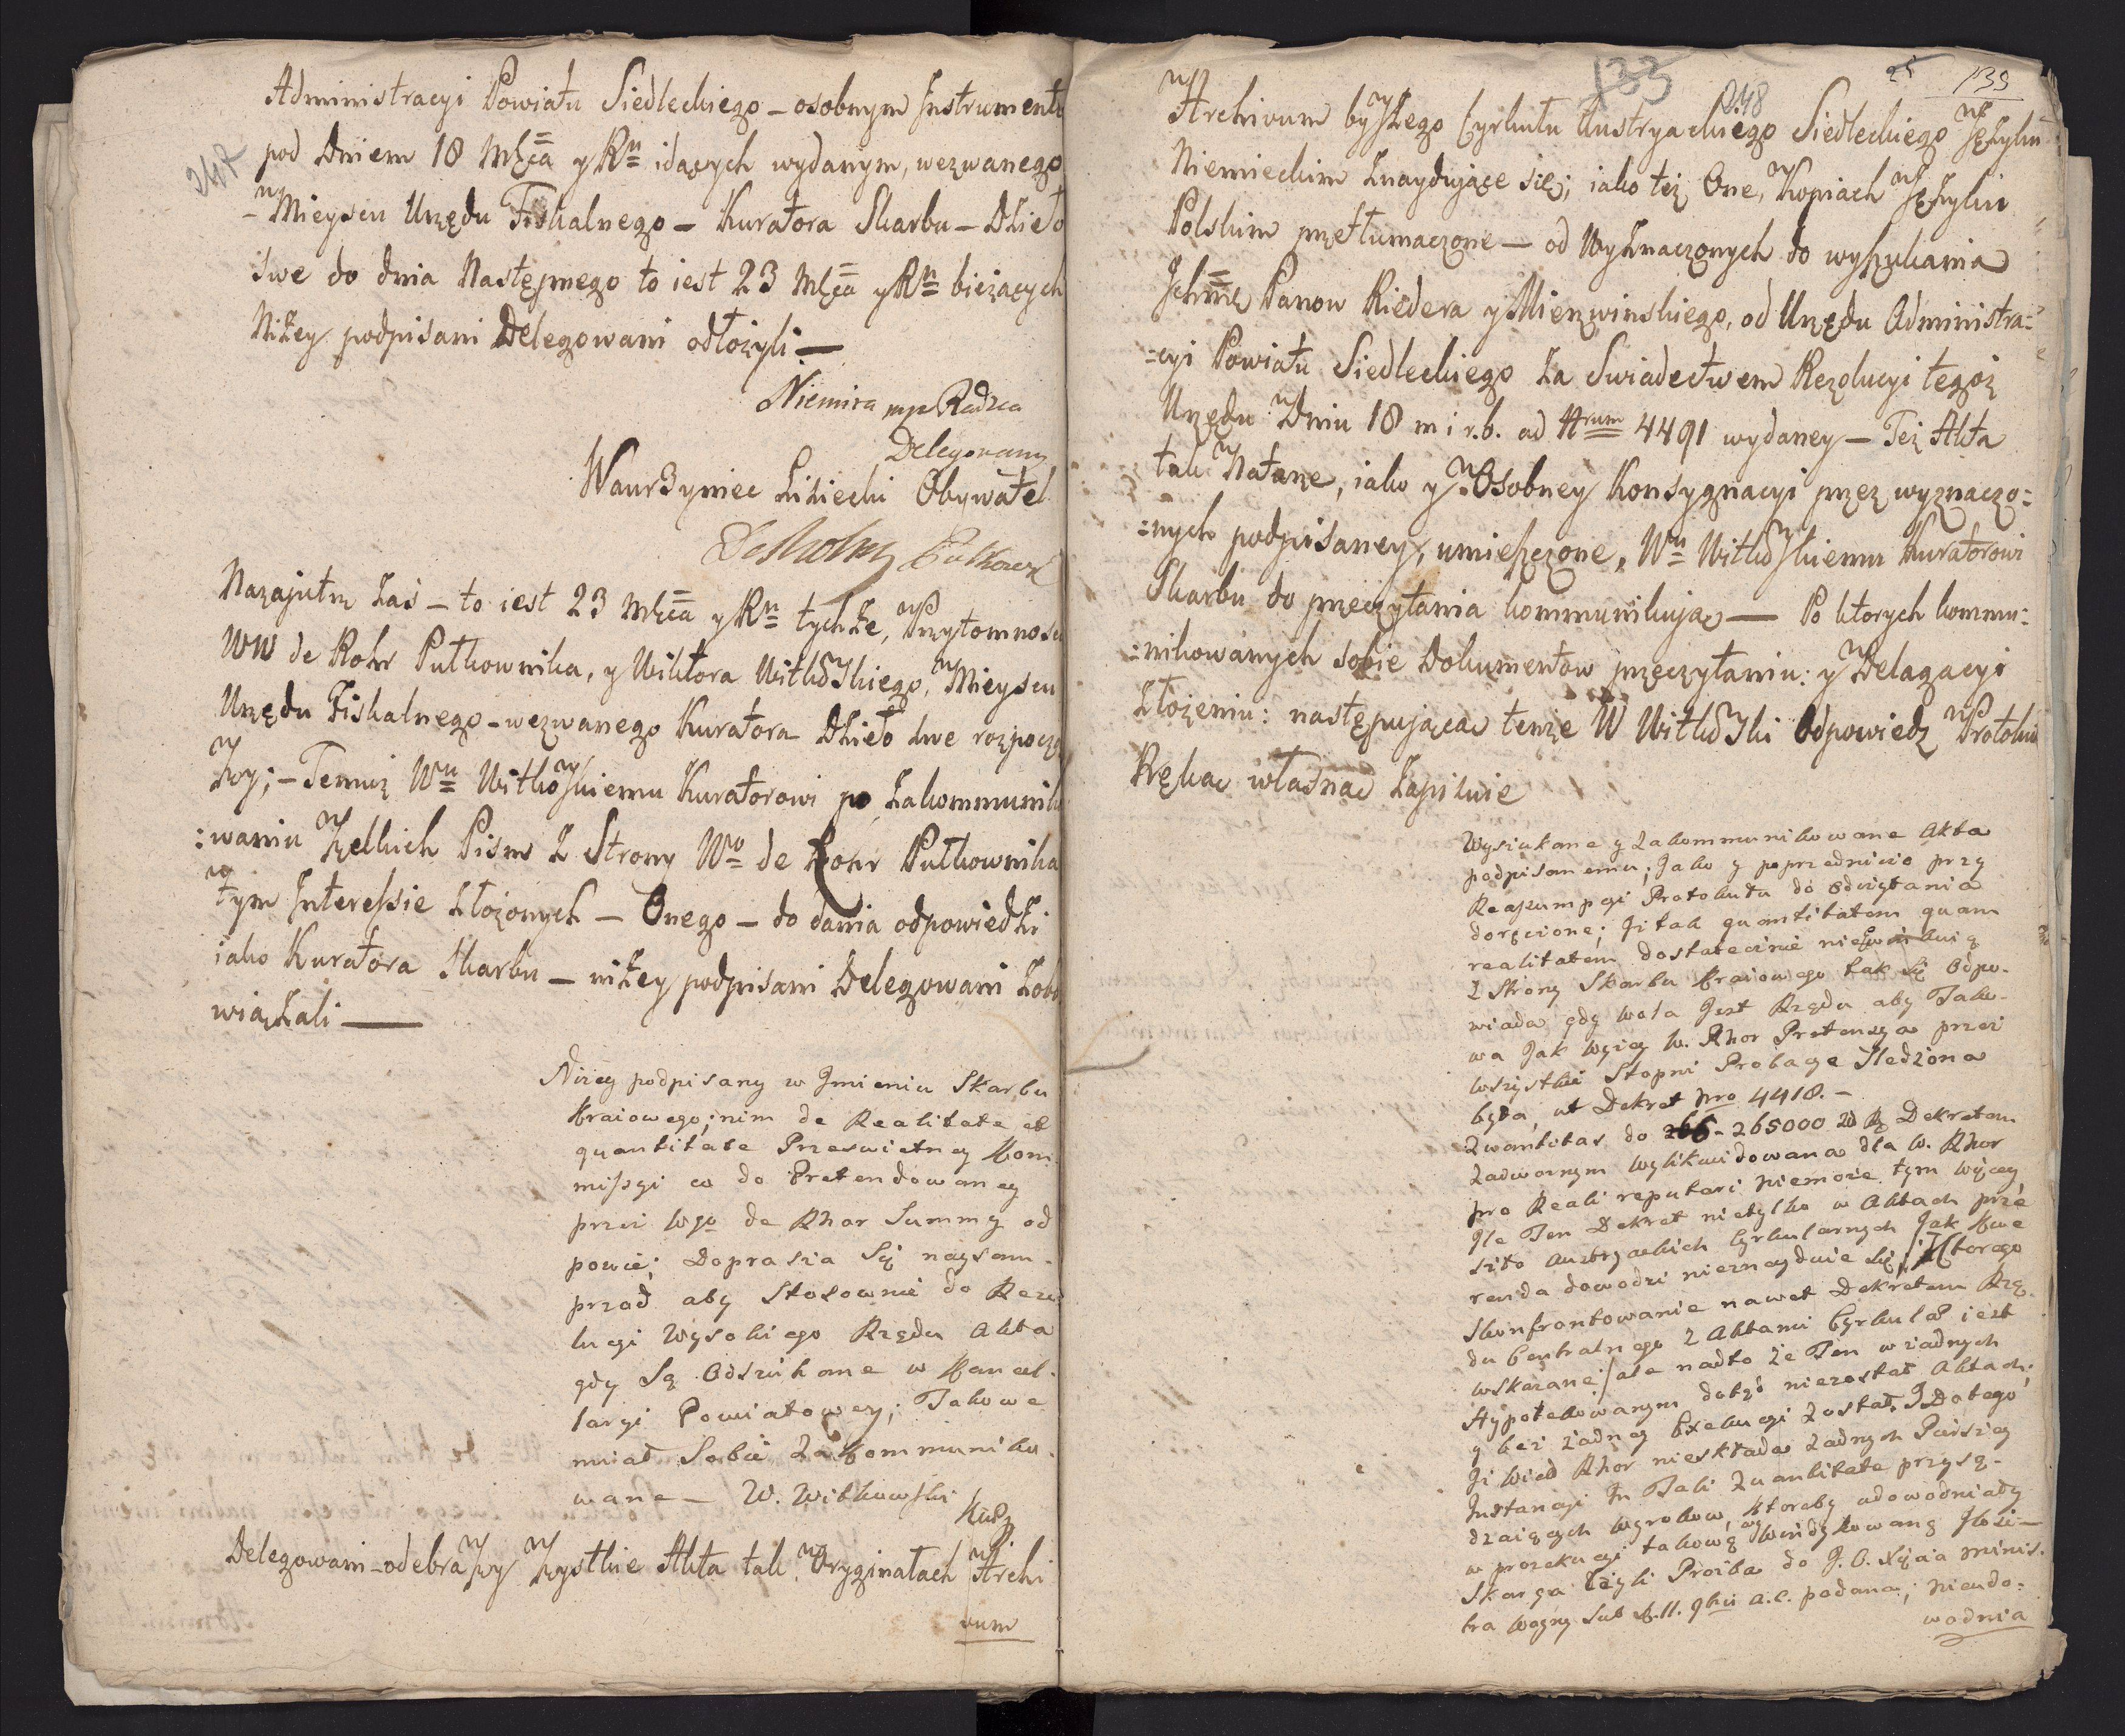 Administracyi Powiatu Siedleckiego – osobnym Instrumente
pod Dniem 18 Mśca y Ru idących wydanym, wezwanego
w Mieyscu Urzędu Fiskalnego – Kuratora Skarbu – Dzieło
swe do dnia Następnego to iest 23 Mśca y Ru bieżących
Niżey podpisani Delegowani odłożyli —
Niemira mp Radzca
Delegowany
Waurzyniec Liziecki Obywatel
Nazajutrz zaś – to iest 23 Mśca y Ru tychże, w Przytomnosci
WW de Rohr Pułkownika, y Wiktora Witkowskiego, w Mieyscu
Urzędu Fiskalnego – wezwanego Kuratora Dzieło swe rozpoczą
wszy; – Temuż Wu Witkowskiemu Kuratorowi po zakommuniko
:waniu wszelkich Pism z Strony Wo de Rohr Pułkownika
w tym Interessie złożonych – Onego – do dania odpowiedzi
iako Kuratora Skarbu – niżey podpisani Delegowani zobo
wiązali —
Niżey podpisany w Jmieniu Skarbu
Kraiowego; nim de Realitate et
quantitate Przeswietney Kom:
missyi co do Pretendowaney
przez Wgo de Rhor Summy od
powie; Doprasza Się naysam-
przod aby Stosownie do Rezo
lucyi Wysokiego Rządu Akta
gdy Są Odszukane w Kancel-
laryi Powiatowey; Takowe
miał Sobie Zakommuniko-
wane – W. Witkowski
KuSz
Delegowani – odebrawszy wszystkie Akta tak w Oryginałach w Archi
vum
133
248
25 133
247
w Archivum byłszego Cyrkułu Austryackiego Siedleckiego w Jęzÿku
Niemieckim znaydujące się; iako też One, w Kopiach w Jęzÿku
Polskim przetłumaczone — od Wyznaczonych do wyszukania
Jchmć Panow Riedera y Mierzwinskiego, od Urzędu Administra:
:cyi Powiatu Siedleckiego za Swiadectwem Rezolucyi tegoż
Urzędu w Dniu 18 m i r.b. ad Nrum 4491 wydaney – Też Akta
tak w Naturze, iako y w Osobney Konsygnacyi przez wyznaczo:
:nych podpisaney, umieszczone, Wu Witkowskiemu Kuratorowi
Skarbu do przeczytania kommunikują — Po ktorych kommu:
:nikowanych sobie Dokumentow przeczytaniu: y w Delagacyi
złożeniu: następującą tenże W Witkowski Odpowiedz w Protokule
Ręką własną zapisuie
Wyszukane y Zakommunikowane Akta
podpisanemu; Jako y poprzedniczo przy
Reassumpcyi Protokułu do odczytania
doręczone; Ji tak quantitatem quam
realitatem dostatecznie nie
z Strony Skarbu Kraiowego tak Się Odpo-
wiada gdy wola Jest Rządu aby Tako-
wa Jak wyżey W. Rhor Pretensya przez
Wszystkie Stopni Probacye Sledzona
była, ut Dekret Nro 4418. –
Quantitas do 265000 Dekretem
Zadwornym wylikwidowana dla W. Rhor
pro Reali reputari niemoże tym więcey
Jle Ten Dekret nietylko w Aktach prze
szło Austryackich Cyrkularnych Jak Kwe
renda dowodzi nieznayduie Się /: Ktorego
Skonfrontowanie nawet Dekretem Rzą-
du Centralnego z Aktami Cyrkuła iest
wskazane :/ ale nadto że Ten w żadnych
Hypotekowanym dotąd niezostał Aktach;
y bez żadney Exekucyi został. J Dotego
Ji Wied Rhor nieskłada żadnych Pierszey
Instancyi In Tali Quantitate przysą-
dzaiących Wyrokow, ktoreby udowodniały
w prozekucyi takową windykowaną Jlosi –
Skarga czyli Proiba do J. O. Xięcia Minis-
tra Woyny Sub d. 11. 9bris a.c. podana; nieudo:
wodnia